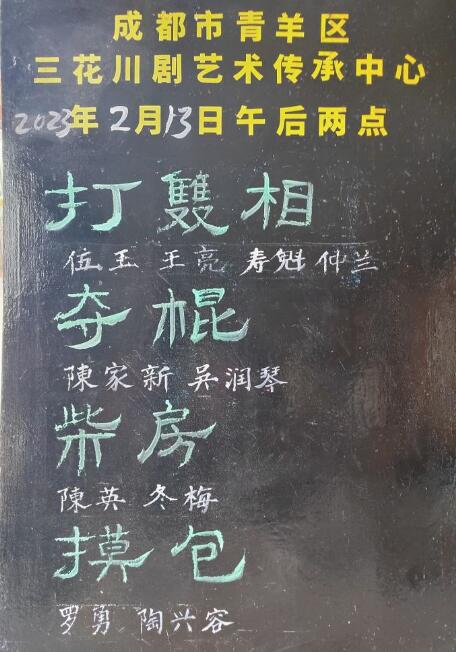 成都市青羊区
三花川剧艺术传承中心
2023年2月13日午后两点
打雙相
位玉 王亮 寿魁 仲兰
夺棍
陳家新 吴润琴
柴房
陳英 冬梅
摸包
罗勇 陶兴容